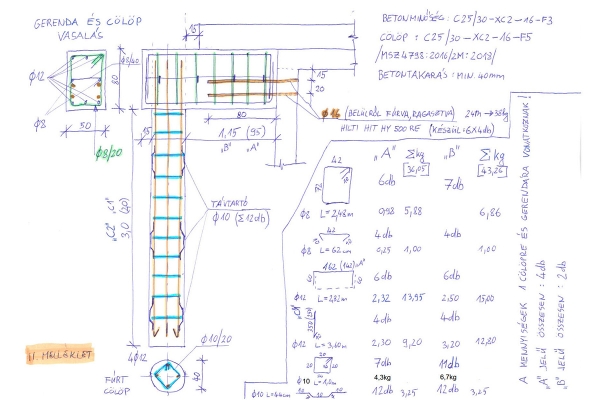 GERENDA ÉS CÖLÖP
VASALÁS
BETONMINŐSÉG: C25/30-XC2-16-F3
CÖLÖP: C25/30-XC2-16-F5
/MSZ 4798:2016/2M:2018/
BETONTAKARÁS: MIN. 40mm
15
Φ8/40
Φ12
80
Φ8
50
Φ8/20
15
20
80
15
1,15 (95)
"B" "A"
Φ16 (BELÜLRŐL FÚRVA, RAGASZTVA) 24m → 38kg
HILTI HIT HY 500 RE (KÉSZÜL: 6×4db)
TÁVTARTÓ
Φ10 (Σ12db)
"C2" "C1"
3,0 (20)
"A" Σkg "B" Σkg
36,05 43,26
42
72
6db 7db
Φ8 L=2,48m 0,98 5,88 6,86
42
4db 4db
Φ8 L=62cm 0,25 1,00 1,00
162 (142) "A"
6db 6db
Φ12 L=2,82m 2,32 13,95 2,50 15,00
4db 4db
Φ12 L=3,60m 2,30 9,20 3,20 12,80
20
20
7db 11db
Φ10 4,3kg 6,7kg
Φ10 L=44cm 12db 3,25 12db 3,25
II. MELLÉKLET
4Φ12
Φ10/20
40
FÚRT
CÖLÖP
A MENNYISÉGEK 1 CÖLÖPRE ÉS GERENDÁRA VONATKOZNAK!
"A" JELŰ ÖSSZESEN: 4db
"B" JELŰ ÖSSZESEN: 2db